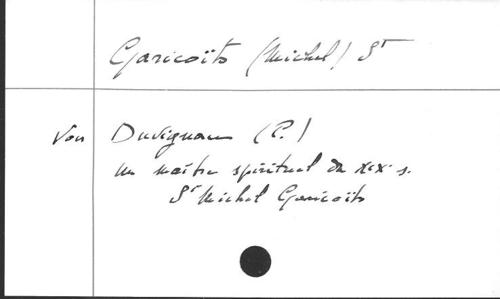 Garicoïts (Michel) St
Voir Duvignau (P.)
un maître spirituel du XIXe s.
St Michel Garicoïts